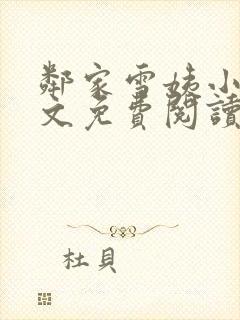 鄰家雪姨小
文免費閱讀
杜貝